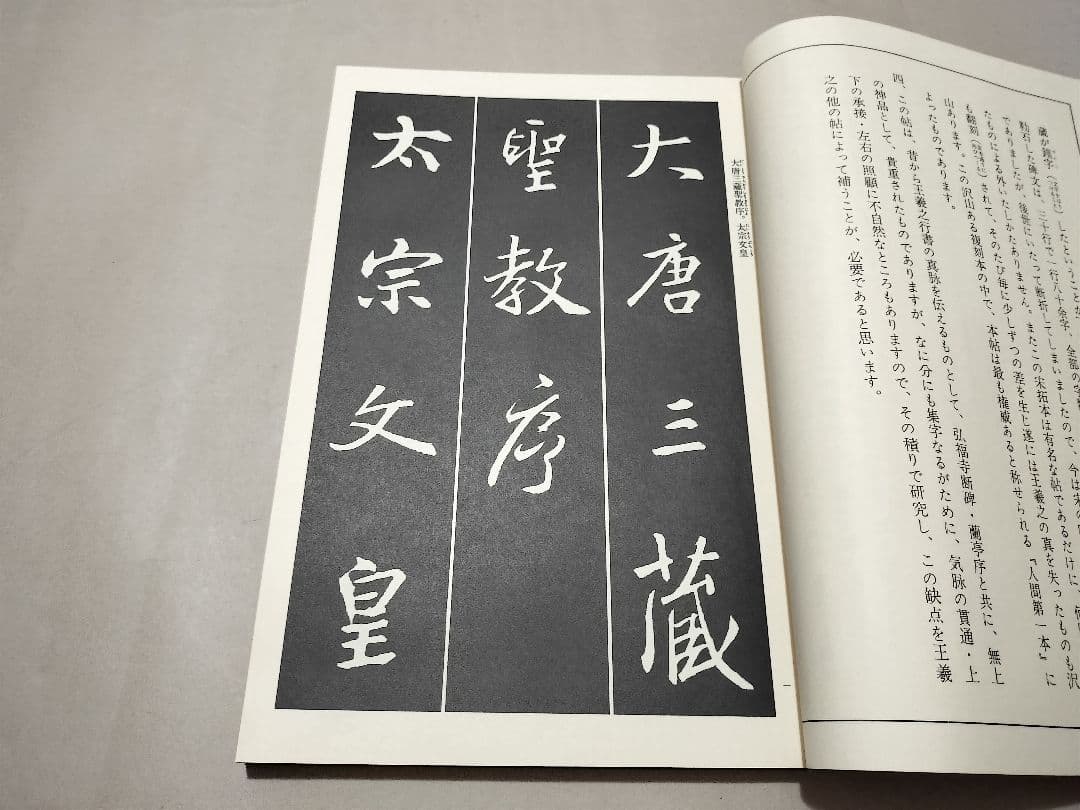 蔵が鐘字
したということが、
勒石した碑文は、三十行で一行八十余字、全部の字
でありましたが、後世にいたって断折してしまいましたので、今は宋の
たものによる外いたしかたありません。またこの宋拓本は有名な帖であるだけに、何
も翻刻
されて、そのたび毎に少しずつの差を生じ遂には王羲之の真を失ったものも沢
山あります。この沢山ある複刻本の中で、本帖は最も権威あると称せられる『人間第一本』に
よったものであります。
四、この帖は、昔から王羲之行書の真脉を伝えるものとして、弘福寺断碑・蘭亭序と共に、無上
の神品として、貴重されたものでありますが、なに分にも集字なるがために、気脉の貫通・上
下の承接・左右の照顧に不自然なところもありますので、その積りで研究し、この缺点を王羲
之の他の帖によって補うことが、必要であると思います。
大唐三蔵聖教序。太宗文皇
大唐三藏
聖教序
太宗文皇
一